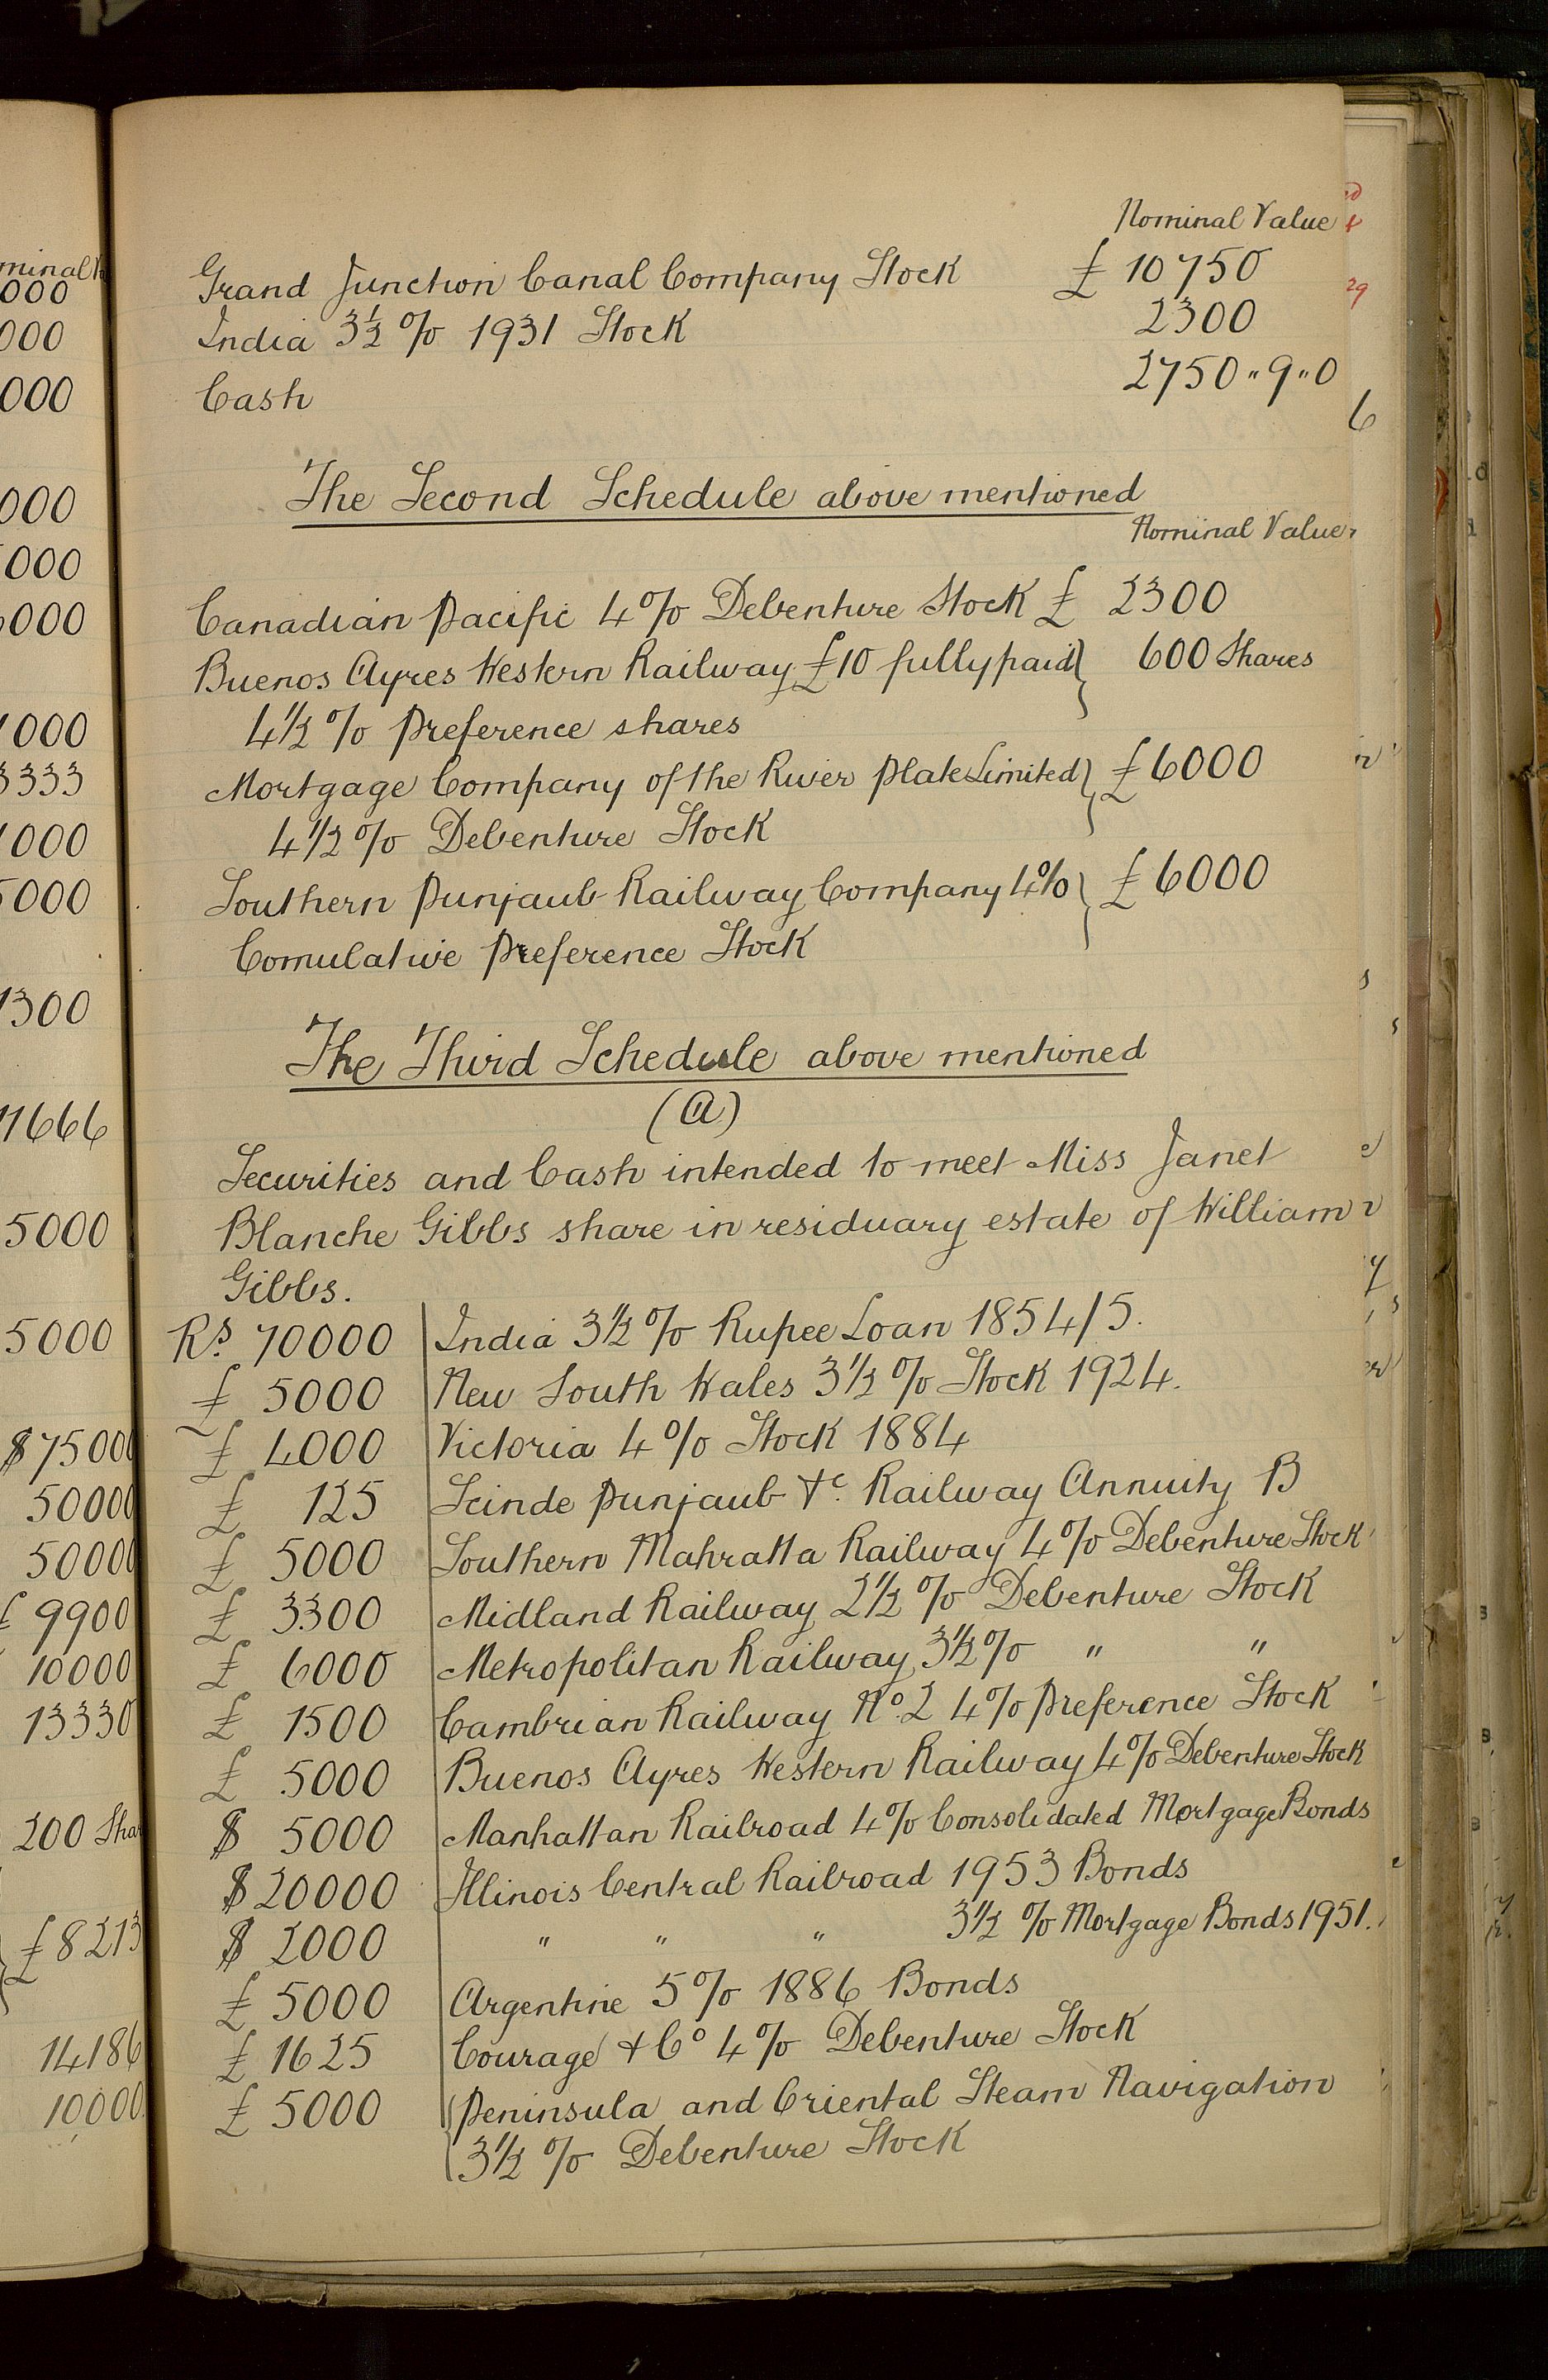 Nominal Value
Grand Junction Canal Company Stock £ 10750
India 3½ % 1931 Stock 2300
Cash 2750 " 9 " 0
The Second Schedule above mentioned
Nominal Value
Canadian Pacific 4% Debenture Stock £ 2300
Buenos Ayres Western Railway £10 fully paid} 600 Shares
4½ % Preference shares
Mortgage Company of the River Plate Limited} £6000
4½ % Debenture Stock
Southern Punjaub Railway Company 4%} £6000
Comulative Preference Stock
The Third Schedule above mentioned
(A)
Securities and Cash intended to meet Miss Janet
Blanche Gibbs share in residuary estate of William
Gibbs.
Rs. 70000 India 3½ % Rupee Loan 1854/5.
£ 5000 New South Wales 3½ % Stock 1924.
£ 4000 Victoria 4% Stock 1884
£ 125 Scinde Punjaub &c. Railway Annuity B
£ 5000 Southern Mahratta Railway 4% Debenture Stock
£ 3300 Midland Railway 2½ % Debenture Stock
£ 6000 Metropolitan Railway 3½ % " "
£ 1500 Cambrian Railway No. 2 4% Preference Stock
£ 5000 Buenos Ayres Western Railway 4% Debenture Stock
$ 5000 Manhattan Railroad 4% Consolidated Mortgage Bonds
$ 20000 Illinois Central Railroad 1953 Bonds
$ 2000 " " " 3½ % Mortgage Bonds 1951.
£ 5000 Argentine 5% 1886 Bonds
£ 1625 Courage & Co 4% Debenture Stock
£ 5000 {Peninsula and Oriental Steam Navigation
3½ % Debenture Stock